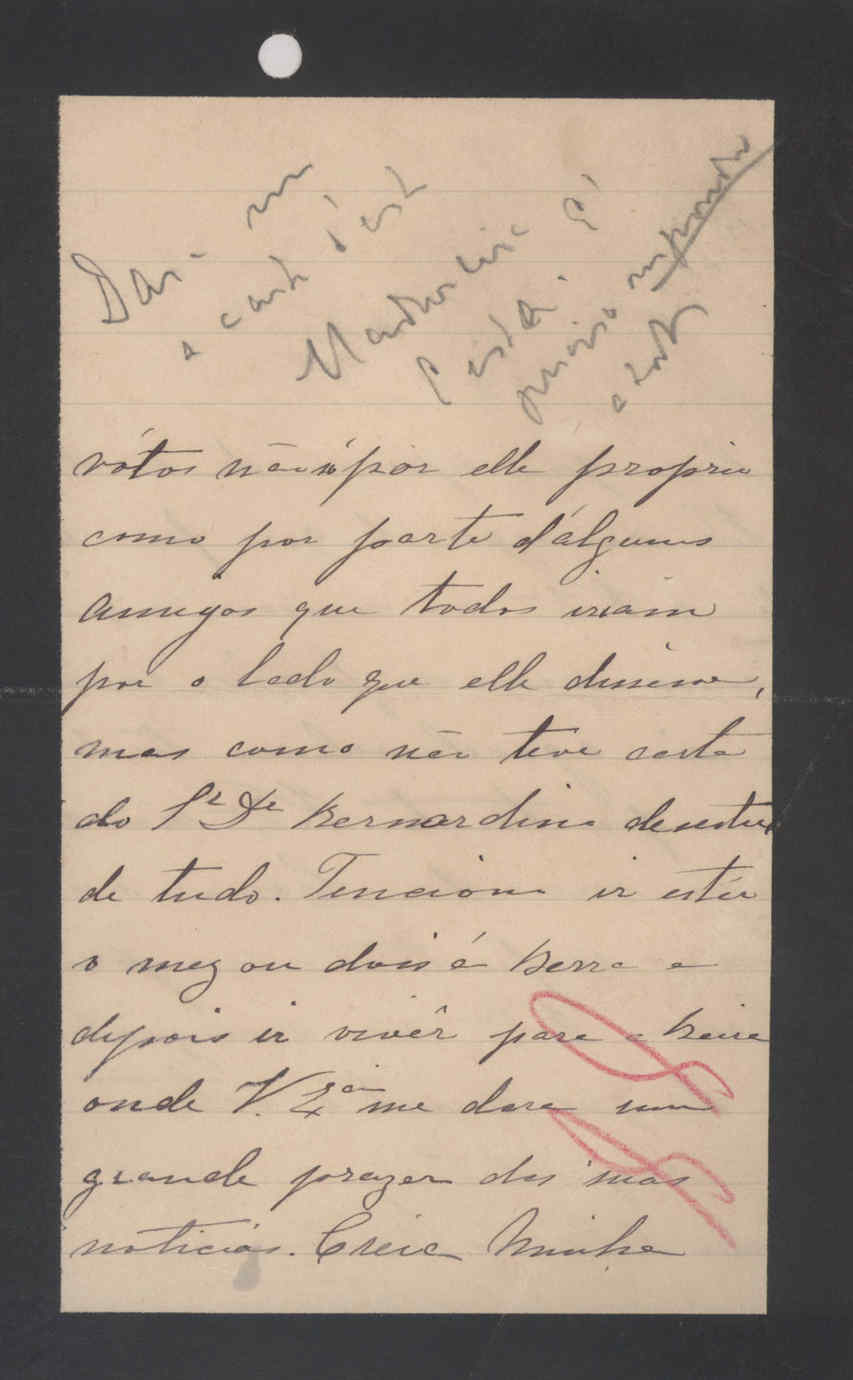 Dar-me
a carta d'est
é
precisa
responder
a carta
vótos não só por elle proprio
como por parte d'álguns
amigos que todos iriam
por o lado que elle dissesse,
mas como não teve carta
do Sr Dr Bernardino desestiu
de tudo. Tenciona ir estár
o mez ou dois á Serra e
depois ir vivêr para a Beira
onde V. Exa me dará um
grande prazer das suas
noticias. Creia Minha